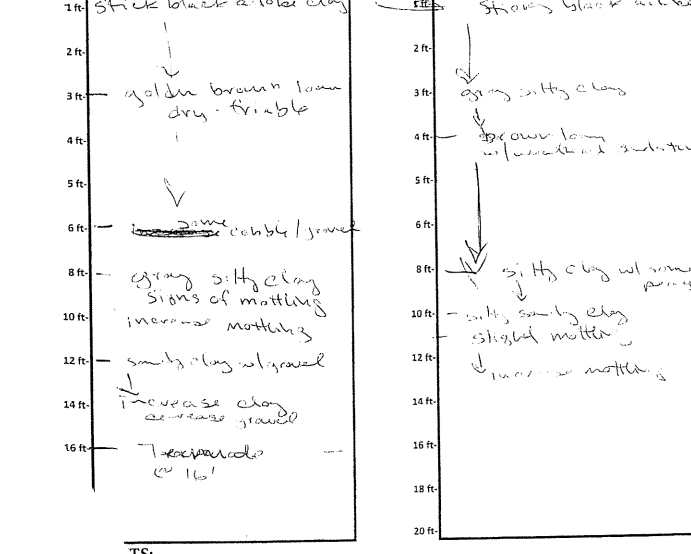 1 ft-
stick black adobe clay
2 ft-
3 ft-
golden brown loam
dry - friable
4 ft-
5 ft-
6 ft-
some cobble/gravel
8 ft-
gray silty clay
signs of mottling
10 ft-
increase mottling
12 ft-
sandy clay w/gravel
14 ft-
increase clay
decrease gravel
16 ft-
@ 16'
TS:
5 ft-
black
2 ft-
3 ft-
gray silty clay
4 ft-
brown loam
w/weathered
5 ft-
6 ft-
8 ft-
silty clay w/ some
10 ft-
silty sandy clay
slight mottling
12 ft-
increase mottling
14 ft-
16 ft-
18 ft-
20 ft-